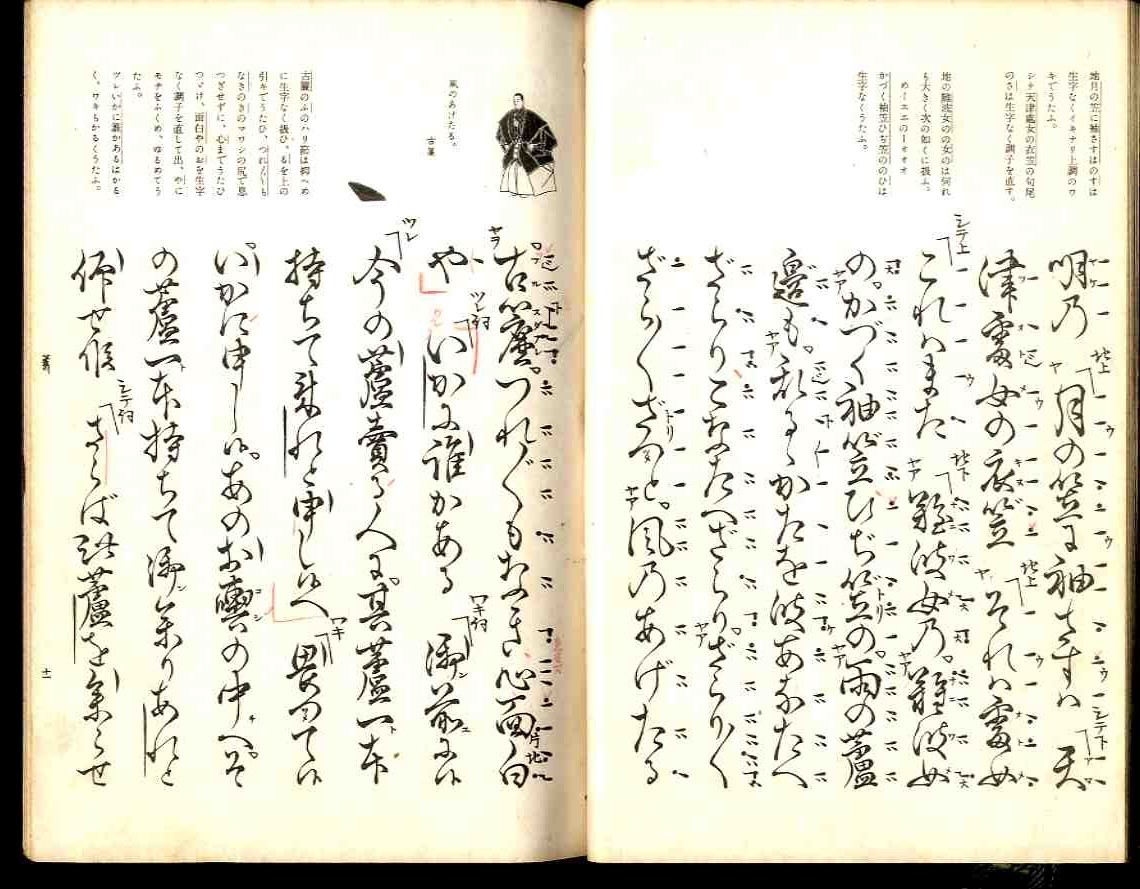 地月の笠に袖さすはのすは
生字なくイキナリ上調のワ
キでうたふ。
シテ天津處女の衣笠の句尾
のさは生字なく調子を直す。
地の難波女のの女のは何れ
も大きく次の如くに扱ふ。
めーエエのーオオオ
かづく袖笠ひぢ笠ののひは
生字なくうたふ。
明乃 地上 月の笠に袖さすハ シテ下 天
津處女の衣笠 地上 それハ處女
シテ上 これハまた 地下 難波女乃。難波女
の。かづく袖笠ひぢ笠の。雨の蘆
邊も。亂るゝかたを波あなたへ
ざらりこなたへざらり。ざらり〳〵
ざら〳〵ざつと。風乃あげたる
風のあげたる。
古簾
引キてうたひ、つれ〴〵も
なきのきのマワシの尻で息
つぎせずに、心までうたひ
つゞけ、面白やのおを生字
なく調子を直して出、やに
モチをふくめ、ゆるめてう
たふ。
ツレいかに誰かあるはかる
く、ワキもかるくうたふ。
古簾。つれ〴〵もなき心面白
や ツレ詞 いかに誰かある ワキ詞 御前に候
ツレ 今の蘆賣る人に。其蘆一本
持ちて來れと申し候へ ワキ 畏つて候
いかに申し候。あのお輿の中へ。そ
の蘆一本持ちて御參りあれと
仰せ候 シテ詞 さらば此蘆を參らせ
蘆刈
十一